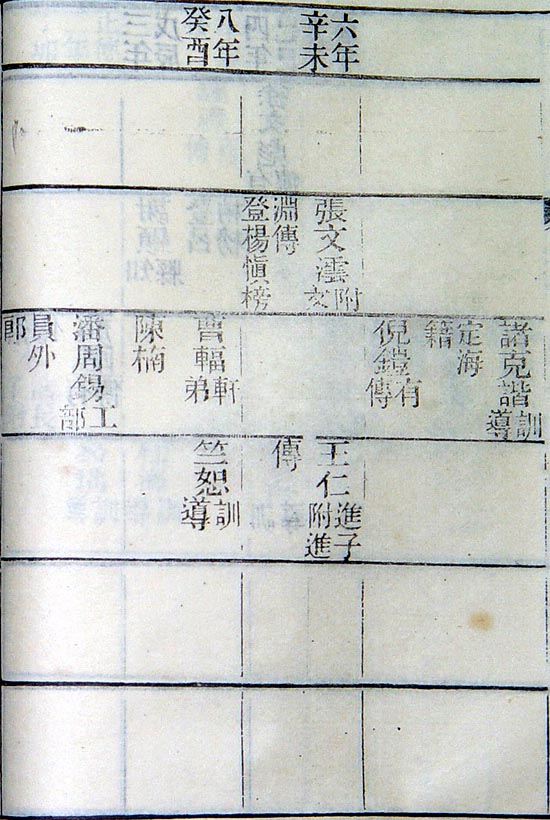 六年
辛未
八年
癸酉
張文澐附文
淵傳
登楊愼榜
諸克諧訓導
定海
籍
倪鎧有傳
曹輻軒弟
陳楠
潘周錫工部
員外
郎
王仁進子附進
傳
竺恕訓導